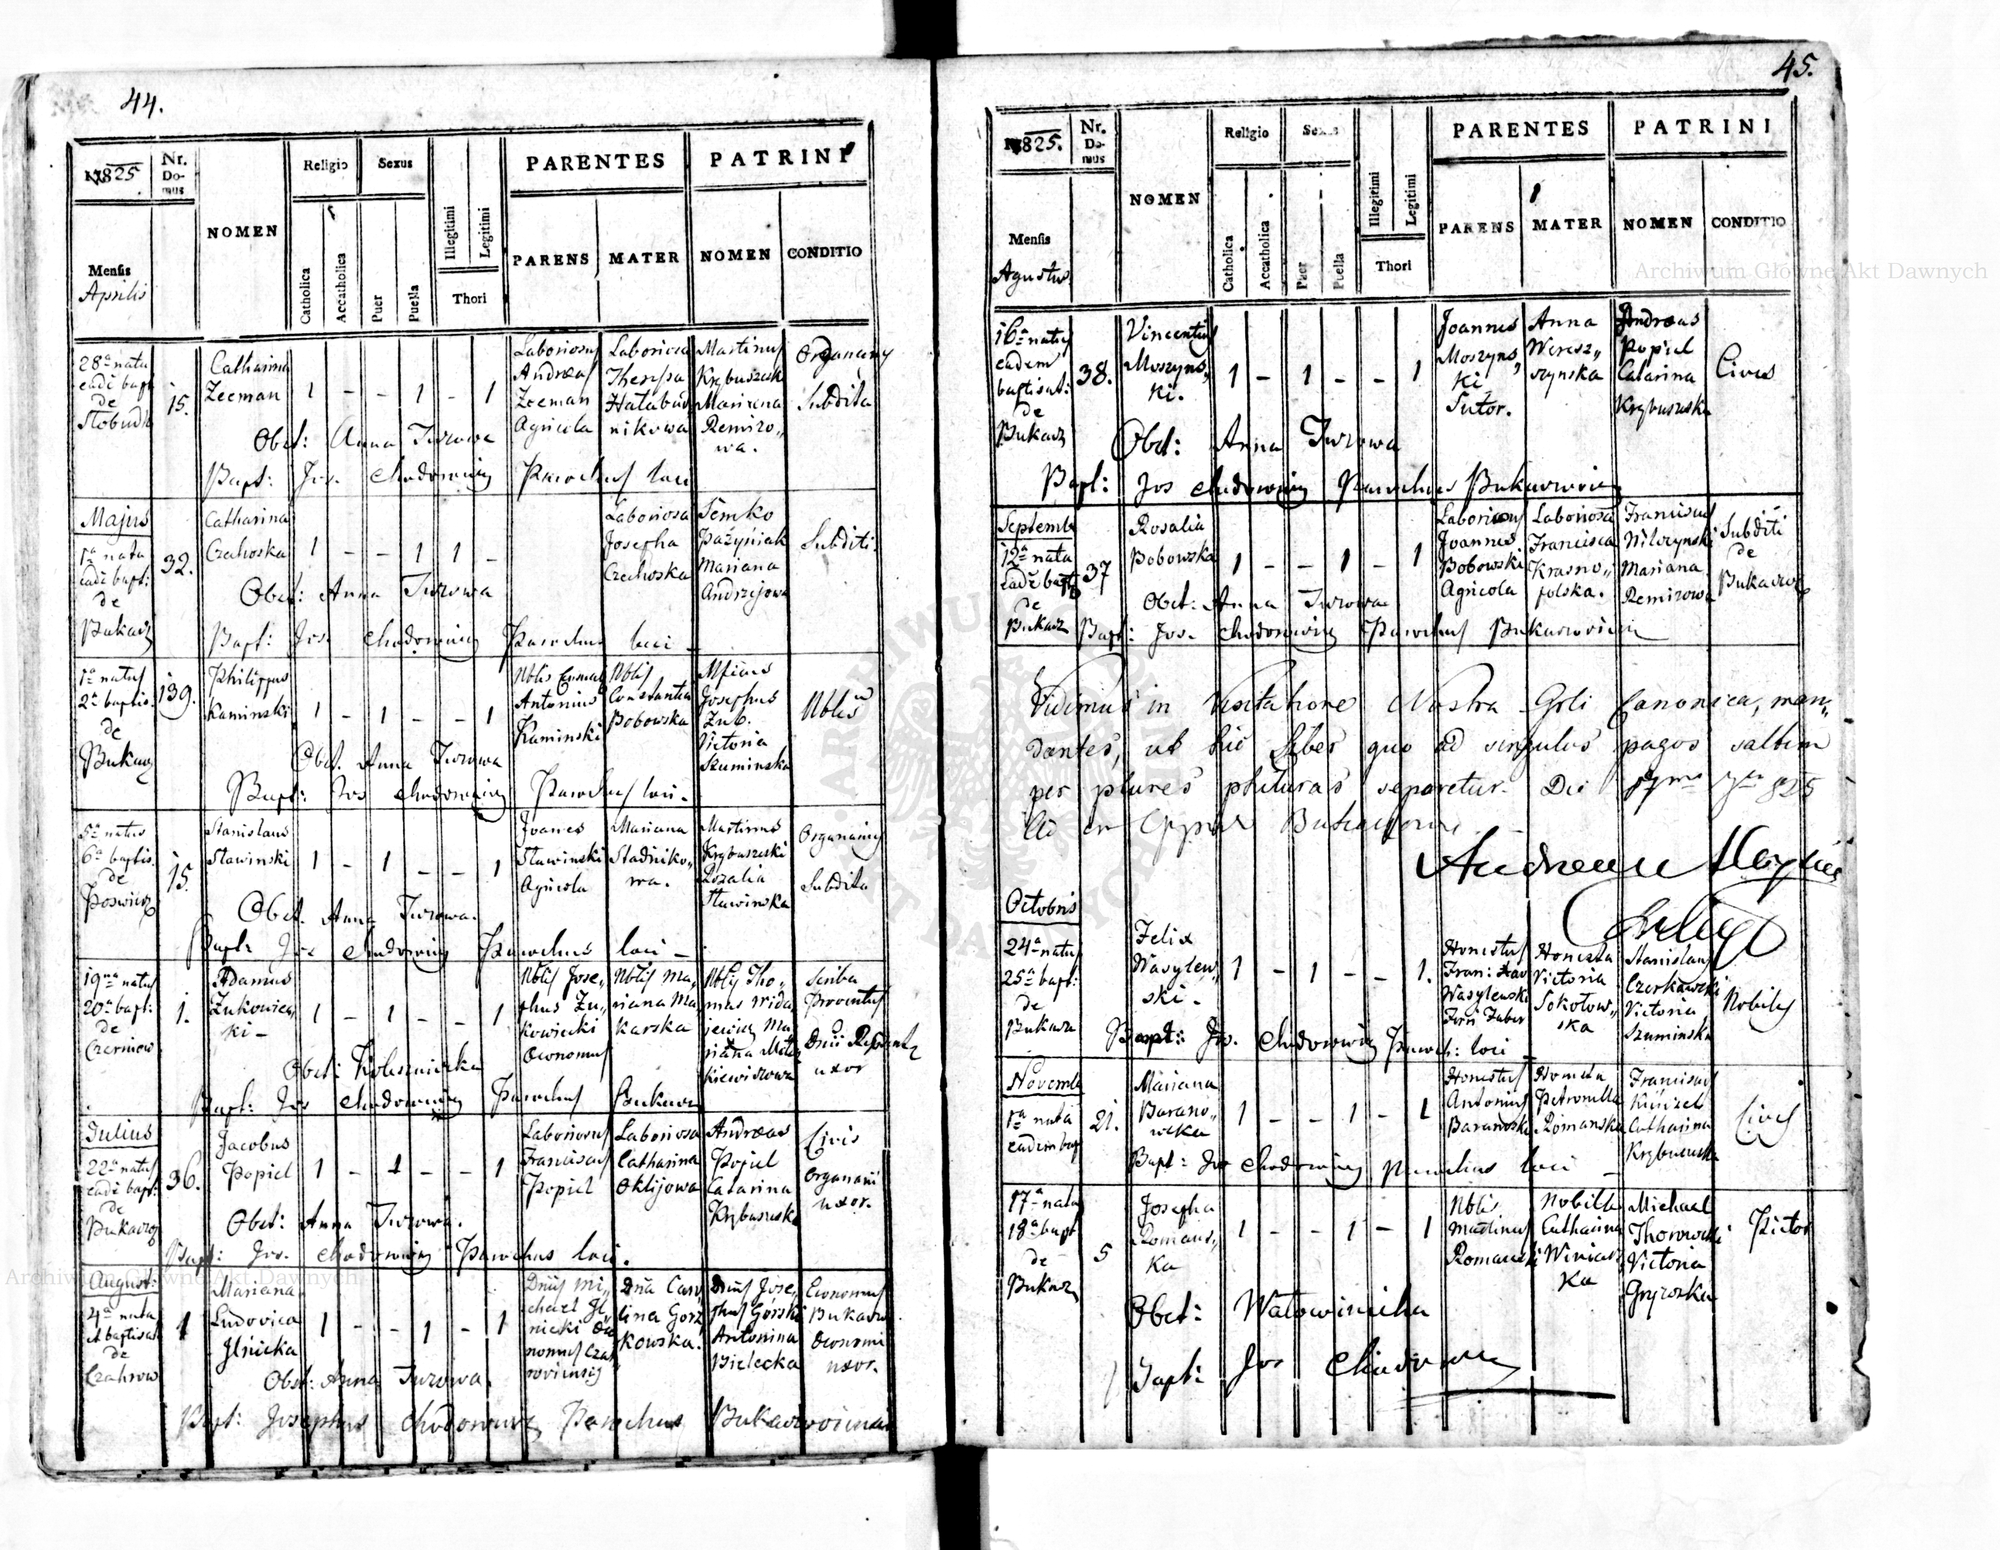 44.
1825
Nr. Do- mus
NOMEN
Religio
Sexus
Illegitimi
Legitimi
Thori
PARENTES
PATRINI
Mensis
Aprilis
Catholica
Accatholica
Puer
Puella
PARENS
MATER
NOMEN
CONDITIO
28a nata
eadē bapt
de
15.
Catharina
Zeeman
1 - - 1 - 1
Laboriosus
Andreas
Zeeman
Agricola
Laboriosa
Theresia
Hałabuz
nikowa
Martinus
Krybuszeski
Marianna
Remizo„
wa.
Organariy
Subdita
Obst: Anna Turowa
Bapt: Jos. Chodowicz Parochus loci
Majus
1a nata
eadē bapt:
de
Bukacz
32.
Catharina
Czechoska
1 - - 1 1 -
Laboriosa
Josepha
Czechoska
Semko
Pażyniak
Mariana
Andrzejowa
Subditi
Obst: Anna Turowa
Bapt: Jos. Chodowicz Parochus loci -
1a natus
2a baptis.
de
Bukacz
139.
Philippus
Kaminski
1 - 1 - - 1
Antonius
Kaminski
Nblis
Constantia
Bobowska
Josephus
Zub.
Victoria
Szuminska
Nbles
Obst. Anna Turowa
Bapt: Jos Chodowicz Parochus loci -
5a natus
6a baptis.
de
15.
Stanislaus
Stawinski
1 - 1 - - 1
Joanes
Stawinski
Agricola
Mariana
Stadniko„
wa.
Martinus
Krybuszeski
Rozalia
Stawinska
Organariy
Subdita
Obst. Anna Turowa.
Bapt: Jos Chodowicz Parochus loci -
19na natus
20a bapt:
de
Czerniow
1.
Adamus
Zukowiec„
ki -
1 - 1 - - 1
Nblis Jose„
phus Zu„
kowiecki
Oeconomus
Nblis Ma„
riana Ma
karska
Nblis Tho„
mas Wida
jewicz Ma„
riana
Scriba
Proventus
uxor
Obst:
Bapt: Jos Chodowicz Parochus Bukacz
Julius
22a natus
eadē bapt:
de
Bukaczo
36.
Jacobus
Popiel
1 - 1 - - 1
Laboriosus
Franciscus
Popiel
Laboriosa
Catharina
Oklijowa
Andreas
Popiel
Catarina
Krybuszeska
Civis
Organarii
uxor.
Obst: Anna Turowa.
Bapt: Jos. Chodowicz Parochus loci.
August:
4a nata
et baptisat
de
Czahrow
1
Mariana
Ludovica
Jlnicka
1 - - 1 - 1
Dnus Mi„
chael Jl
nicki Oeco
nomus Czah
roviensis
Dna Caro
lina Gorz
kowska.
Dnus Jose„
phus Górski
Antonina
Bielecka
Economus
Bukacz
Oeconomi
uxor.
Obst: Anna Turowa.
Bapt: Josephus Chodowicz Parochus Bukaczoviensis
45.
1825.
Nr. Do- mus
NOMEN
Religio
Sexus
Illegitimi
Legitimi
Thori
PARENTES
PATRINI
Mensis
Agustus
Catholica
Accatholica
Puer
Puella
PARENS
MATER
NOMEN
CONDITIO
16a natus
eadem
baptisat:
de
Bukacz
38.
Vincentius
Moszyns„
ki.
1 - 1 - - 1
Joannes
Moszyns„
ki
Sutor.
Anna
Weresz„
czynska
Andreas
Popiel
Catarina
Krybuszeska
Cives
Obst: Anna Turowa
Bapt: Jos Chodowicz Parochus Bukaczowien
Septemb
12a nata
eadē bapt
de
Bukacz
37
Rosalia
Bobowska
1 - - 1 - 1
Laboriosus
Joannes
Bobowski
Agricola
Laboriosa
Francisca
Krasno„
polska.
Franciscus
Wilczynski
Mariana
Remizowa
Subditi
de
Bukaczo
Obst: Anna Turowa
Bapt: Jos. Chodowicz Parochus Bukaczovien
Vidimus in Visitatione Nostra Gnli Canonica, man„
dantes, ut hic Liber quo ad singulos pagos saltem
per plures phituras separetur Die 17ma 7bris 825
Octobris
24a natus
25a bapt:
de
Bukacz
Felix
Wasylew„
ski -
1 - 1 - - 1.
Honestus
Wasylewski
Honesta
Victoria
Sokołow„
ska
Stanislaus
Czerkawski
Victoria
Szuminska
Nobiles
Bapt: Jos. Chodowicz Paroch: loci -
Novemb
1a nata
eadem bap
21.
Mariana
Barano„
wska
1 - - 1 - 1
Honestus
Antonius
Baranoski
Honesta
Petronella
Romanska
Franciscus
Catharina
Krybuszeska
Cives
Bapt: Jos Chodowicz Parochus loci -
17a nata
18a bapt
de
Bukacz
5
Josepha
Romans„
ka
1 - - 1 - 1
Nblis
Martinus
Romanski
Nobilis
Catharina
Winiarz
ka
Michael
Victoria
Pictor
Obst:
Bapt: Jos Chodowicz
Archiwum Główne Akt Dawnych
Archiwum Główne Akt Dawnych